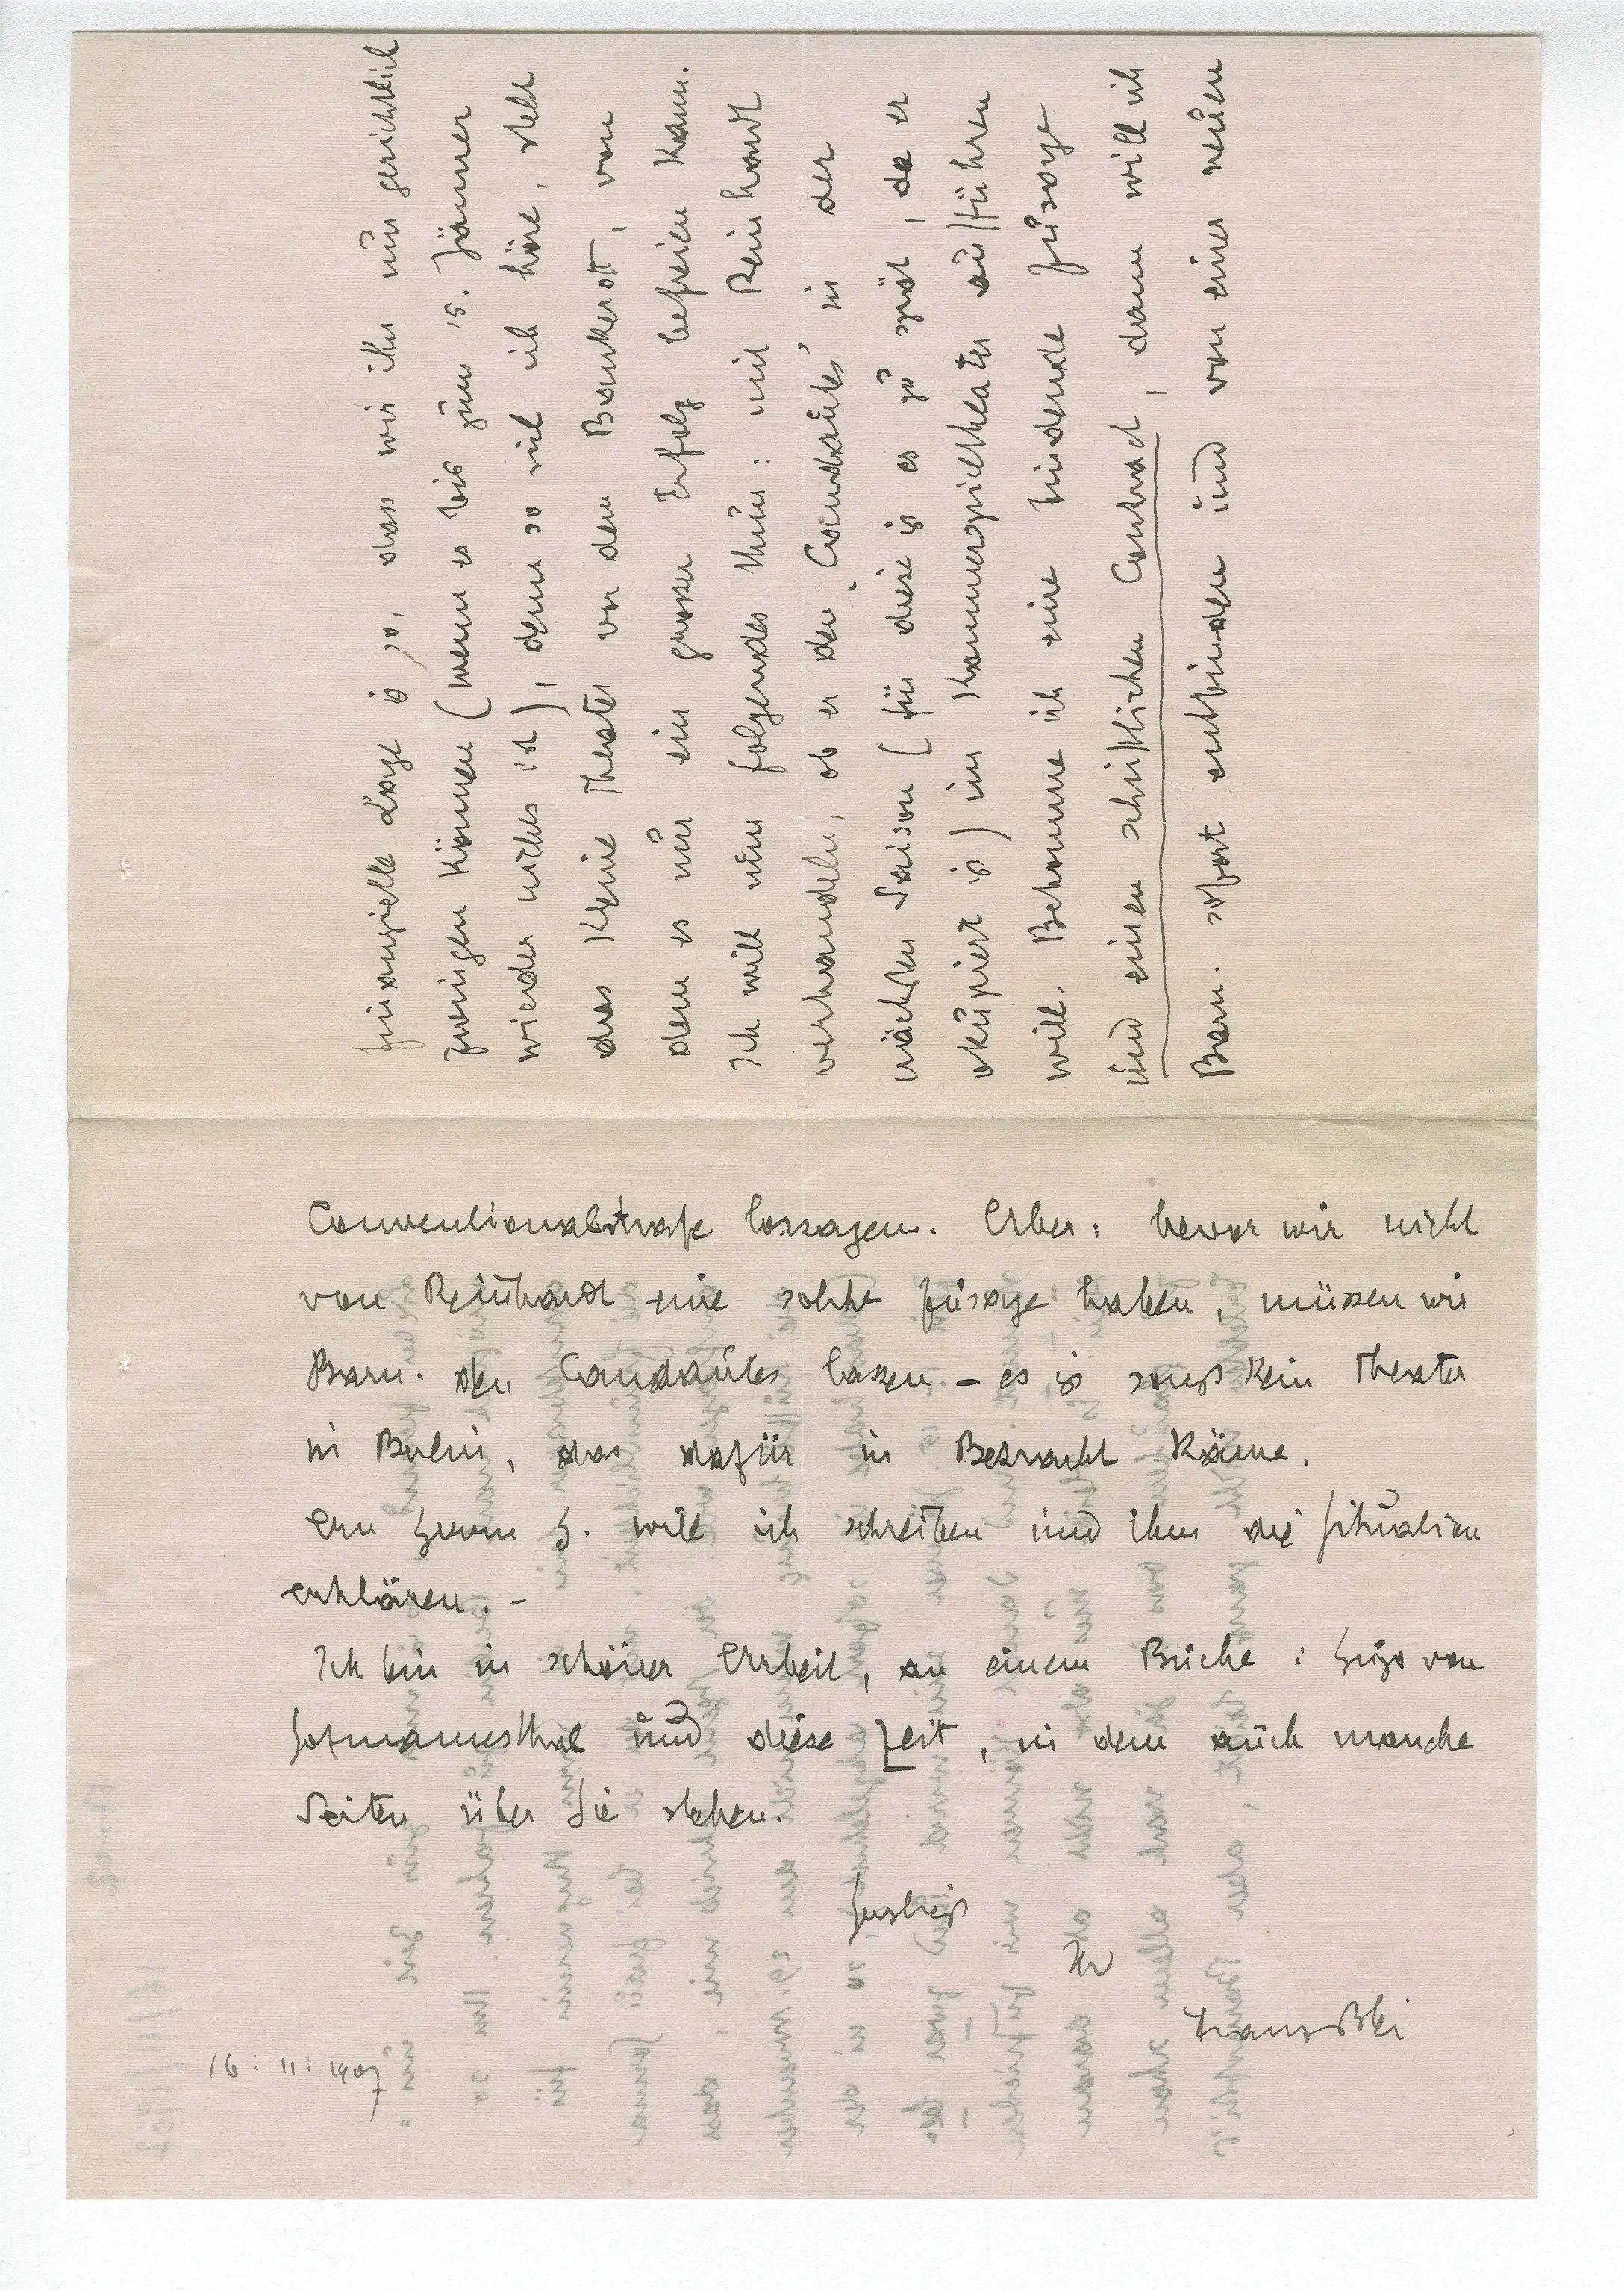 finanzielle Lage is so, dass wir ihn nun gerichtlich
zwingen können (wenn es bis zum 15. Jänner
wieder nichts ist), denn so viel ich höre, steht
das Kleine Theater vor dem Bankerott, von
dem es nur ein grosser Erfolg befreien kann.
Ich will nun folgendes thun: mit Reinhardt
verhandeln, ob er den ‚Candaules' in der
nächsten Saison (für diese is es zu spät, da er
okupiert is) im Kammerspieltheater aufführen
will. Bekomme ich eine bindende Zusage
und einen schriftlichen Contract, dann will ich
Barn. sofort entbinden und von einer neuen
Conventionalstrafe lossagen. Aber: bevor wir nicht
von Reinhardt eine solche Zusage haben, müssen wir
Barn. den Candaules lassen – es is sonst kein Theater
in Berlin, das dafür in Betracht käme.
An Herrn H. will ich schreiben und ihm die Situation
erklären. –
Ich bin in schöner Arbeit, an einem Buche: Hugo von
Hofmannsthal und diese Zeit, in dem auch manche
Seiten über Sie stehen.
herzlichst
Ihr
Franz Blei
16. 11. 1907